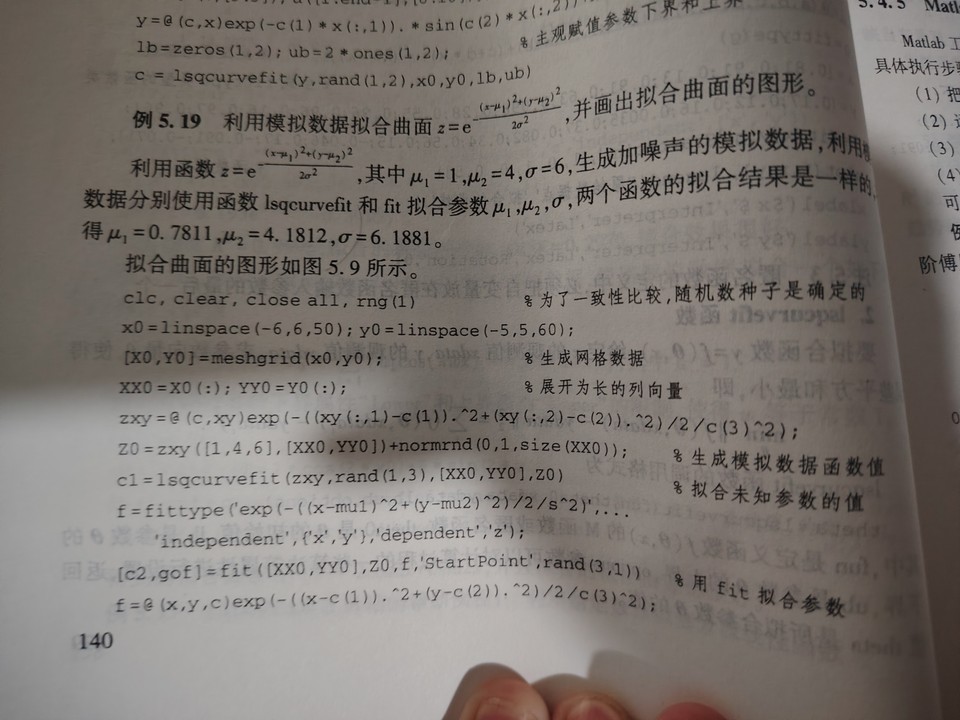 y=@(c,x)exp(-c(1)*x(:,1)).*sin(c(2)*x(:,2))
5.4.5 Matl
lb=zeros(1,2); ub=2*ones(1,2); %主观赋值参数下界和上界
Matlab 工
c = lsqcurvefit(y,rand(1,2),x0,y0,lb,ub)
具体执行步骤
例 5.19 利用模拟数据拟合曲面 z=e^{-\frac{(x-μ₁)²+(y-μ₂)²}{2σ²}},并画出拟合曲面的图形。
(1) 把
(2)
利用函数 z=e^{-\frac{(x-μ₁)²+(y-μ₂)²}{2σ²}},其中 μ₁=1,μ₂=4,σ=6,生成加噪声的模拟数据,利用
(3)
数据分别使用函数 lsqcurvefit 和 fit 拟合参数 μ₁,μ₂,σ,两个函数的拟合结果是一样的,
(4)
得 μ₁=0.7811,μ₂=4.1812,σ=6.1881。
可
拟合曲面的图形如图 5.9 所示。
阶傅
clc, clear, close all, rng(1) %为了一致性比较,随机数种子是确定的
x0=linspace(-6,6,50); y0=linspace(-5,5,60);
[X0,Y0]=meshgrid(x0,y0); %生成网格数据
XX0=X0(:); YY0=Y0(:); %展开为长的列向量
zxy=@(c,xy)exp(-((xy(:,1)-c(1)).^2+(xy(:,2)-c(2)).^2)/2/c(3)^2);
Z0=zxy([1,4,6],[XX0,YY0])+normrnd(0,1,size(XX0)); %生成模拟数据函数值
c1=lsqcurvefit(zxy,rand(1,3),[XX0,YY0],Z0) %拟合未知参数的值
f=fittype('exp(-((x-mu1)^2+(y-mu2)^2)/2/s^2)',...
'independent',{'x','y'},'dependent','z');
[c2,gof]=fit([XX0,YY0],Z0,f,'StartPoint',rand(3,1)) %用 fit 拟合参数
f=@(x,y,c)exp(-((x-c(1)).^2+(y-c(2)).^2)/2/c(3)^2);
140